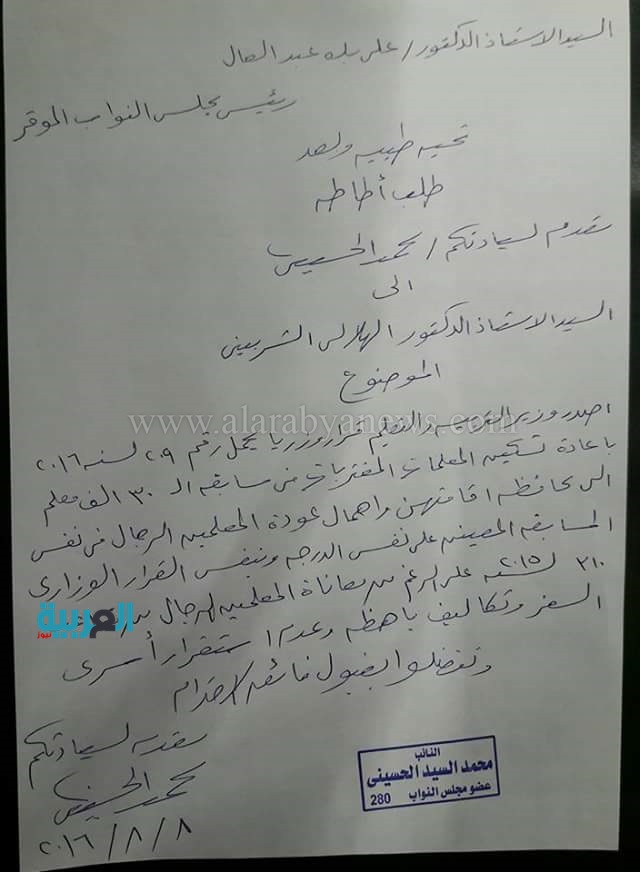 السيد الاستاذ الدكتور / على عبد العال
رئيس مجلس النواب الموقر
تحيه طيبه وبعد
طلب أحاطه
مقدم لسيادتكم / محمد الحسينى
الى
السيد الاستاذ الدكتور الهلالى الشربينى
الموضوع
اصدر وزير التربيه والتعليم قرار وزريا يحمل رقم ٢٠٩ لسنه ٢٠١٦
www.alarabyanews.com
باعادة تسكين المعلمات المغتربات من سابقه الـ ٣٠ الف معلم
الى محافظه اقامتهن واهمال عودة المعلمين الرجال فى نفس
المسابقه المعينه على نفس الدرجه وبنفس القرار الوزارى
٣١٠ لسنه ٢٠١٥ على الرغم من معاناة المعلمين الرجال من
العربية نيوز
السفر وتكاليف باهظه وعدم استقرار أسرى
وتفضلوا بقبول فائق الاحترام
مقدمه لسيادتكم
محمد الحسينى
٢٠١٦/٨/٨
النائب
محمد السيد الحسينى
عضو مجلس النواب 280